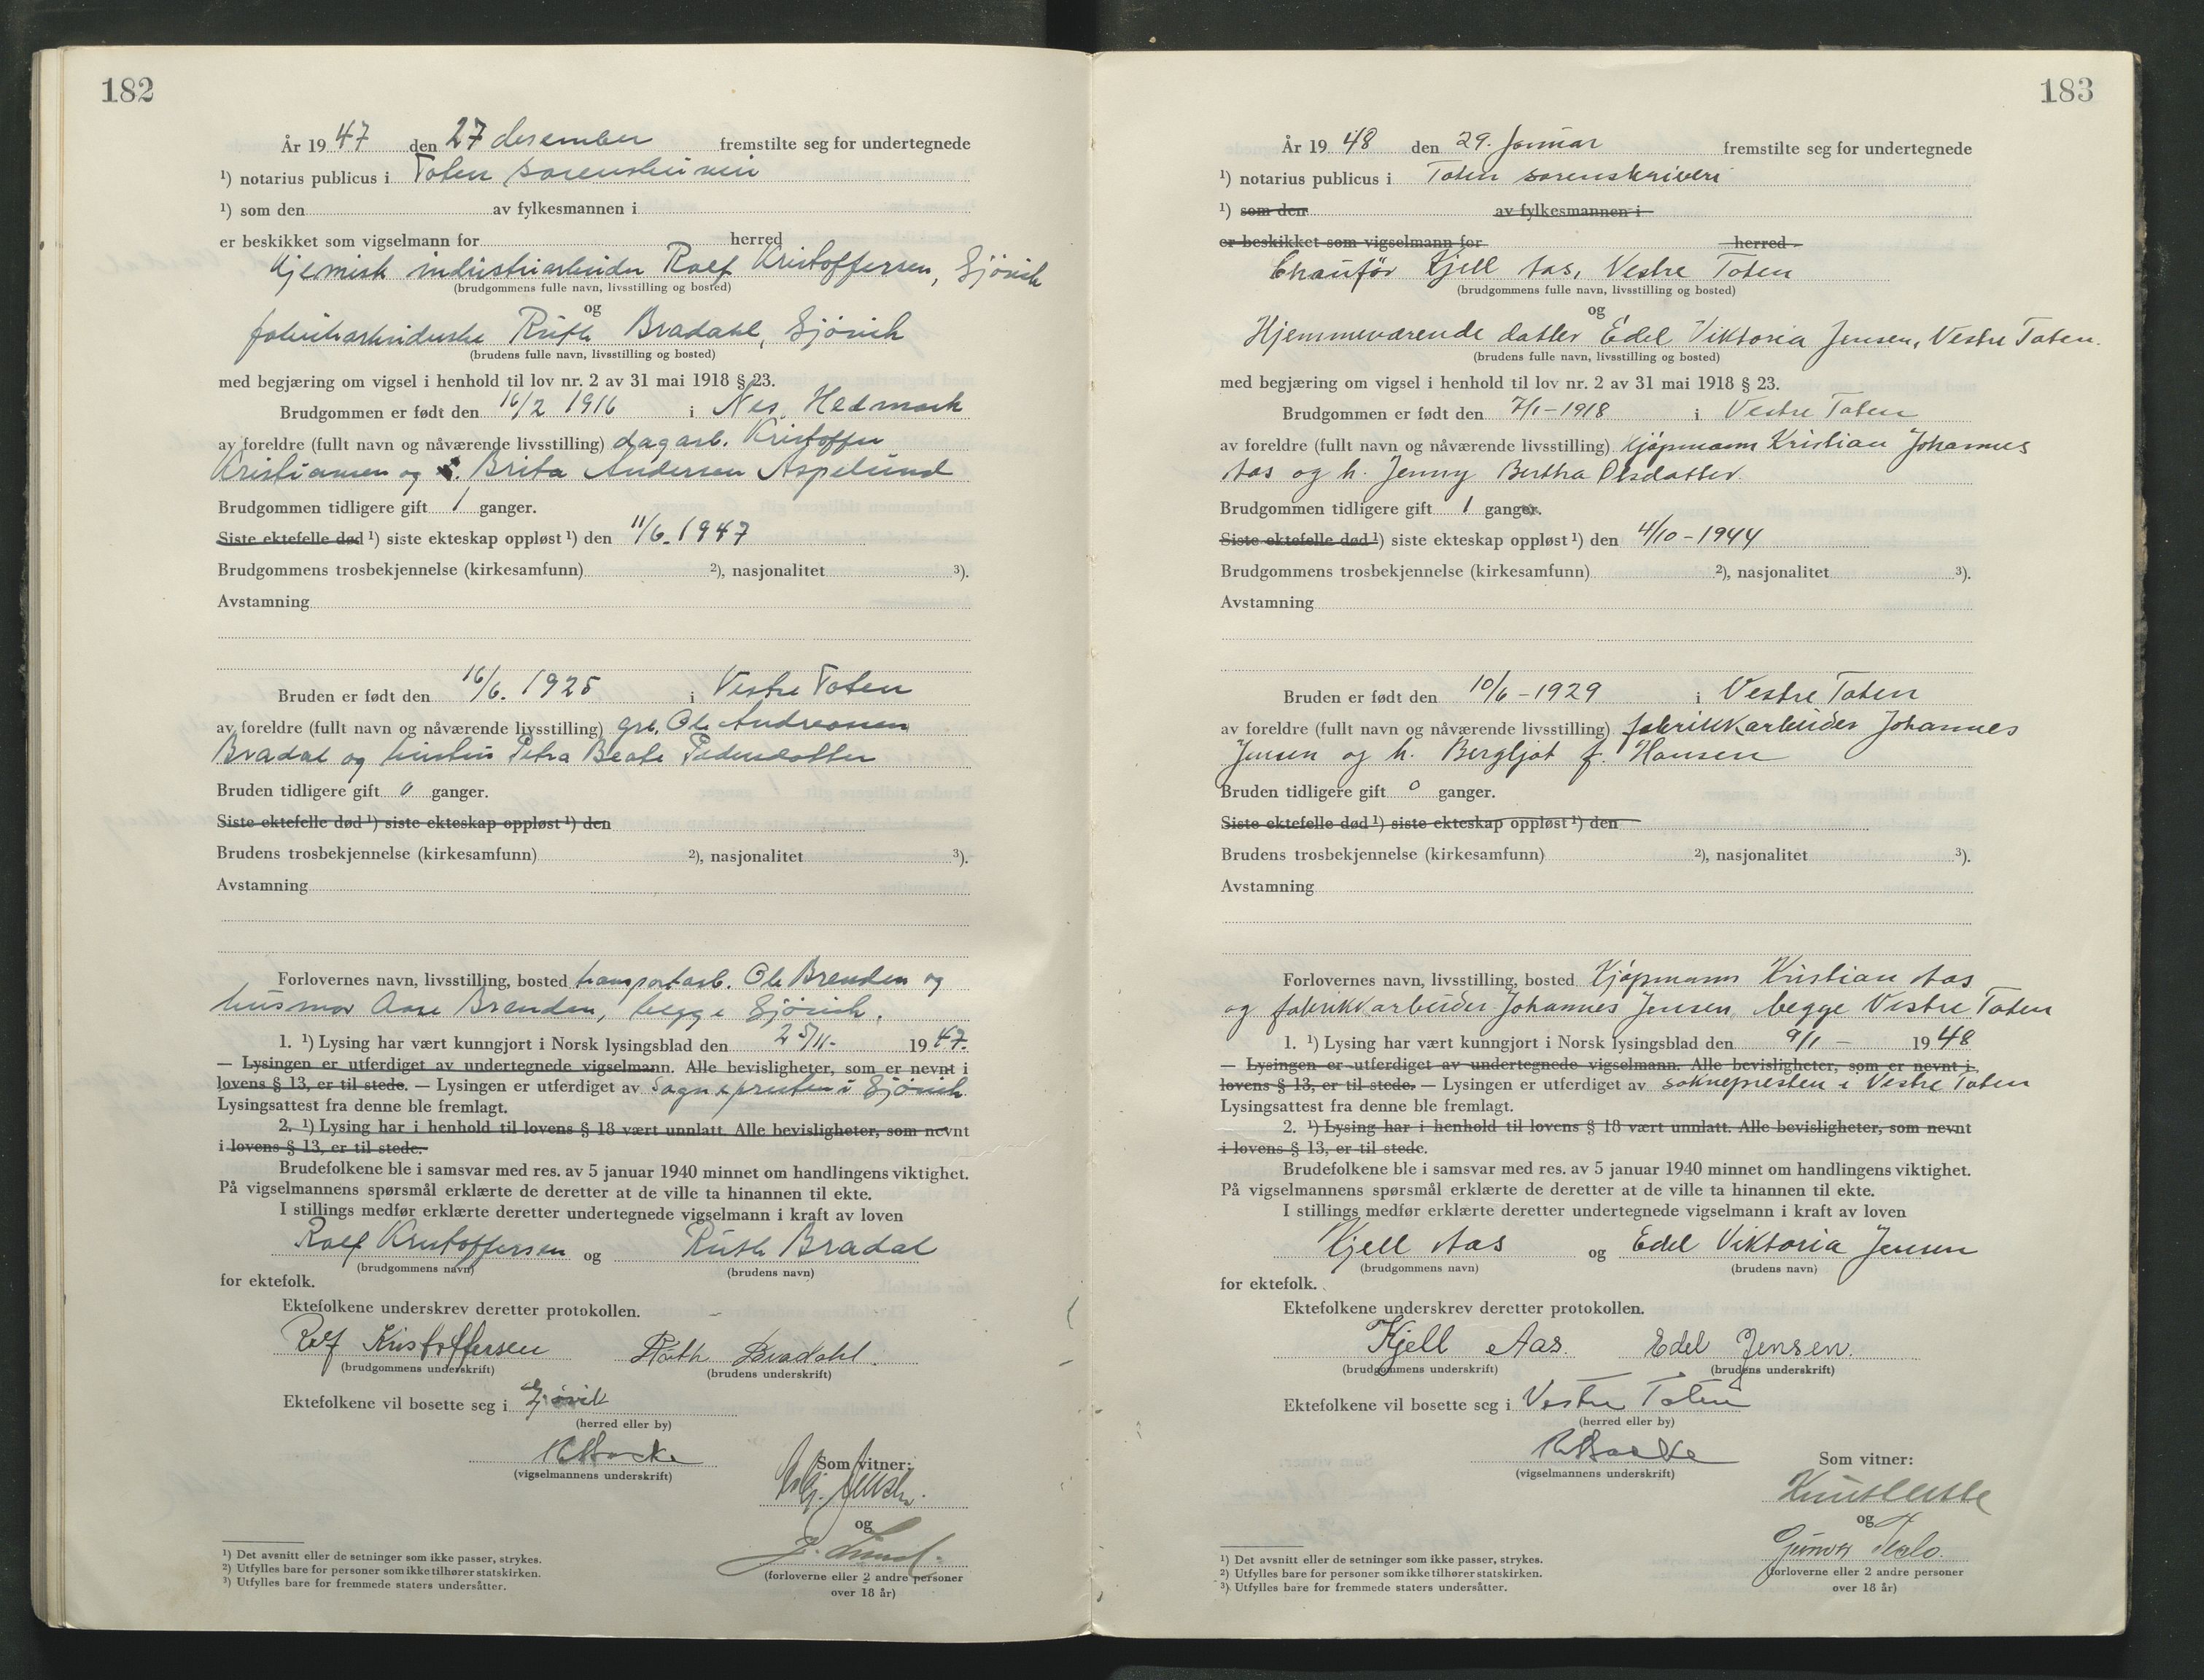 182
År 19 47 den 27 desember fremstilte seg for undertegnede
¹) notarius publicus i Toten sorenskriveri
¹) som den av fylkesmannen i
er beskikket som vigselmann for herred
Kjemisk industriarbeider Rolf Kristoffersen, Gjövik
(brudgommens fulle navn, livsstilling og bosted)
og
fabrikarbeiderske Ruth Bradahl, Gjövik
(brudens fulle navn, livsstilling og bosted)
med begjæring om vigsel i henhold til lov nr. 2 av 31 mai 1918 § 23.
Brudgommen er født den 16/2 1916 i Nes, Hedmark
av foreldre (fullt navn og nåværende livsstilling) dagarb. Kristoffer
Kristiansen og Brita Andersen Aspelund
Brudgommen tidligere gift 1 ganger.
Siste ektefelle død ¹) siste ekteskap oppløst ¹) den 11/6. 1947
Brudgommens trosbekjennelse (kirkesamfunn) ²), nasjonalitet ³).
Avstamning
Bruden er født den 16/6. 1925 i Vestre Toten
av foreldre (fullt navn og nåværende livsstilling) grl. Ole Andreassen
Bradal og hustru Petra Beate Pedersdatter
Bruden tidligere gift 0 ganger.
Siste ektefelle død ¹) siste ekteskap oppløst ¹) den
Brudens trosbekjennelse (kirkesamfunn) ²), nasjonalitet ³).
Avstamning
Forlovernes navn, livsstilling, bosted transportarb. Ole Brenden og
husmor Aase Brenden, begge Gjövik.
1. ¹) Lysing har vært kunngjort i Norsk lysingsblad den 25/11- 19 47.
— Lysingen er utferdiget av undertegnede vigselmann. Alle bevisligheter, som er nevnt i
lovens § 13, er til stede. — Lysingen er utferdiget av sognepresten i Gjövik
Lysingsattest fra denne ble fremlagt.
2. ¹) Lysing har i henhold til lovens § 18 vært unnlatt. Alle bevisligheter, som nevnt
i lovens § 13, er til stede.
Brudefolkene ble i samsvar med res. av 5 januar 1940 minnet om handlingens viktighet.
På vigselmannens spørsmål erklærte de deretter at de ville ta hinannen til ekte.
I stillings medfør erklærte deretter undertegnede vigselmann i kraft av loven
Rolf Kristoffersen og Ruth Bradal
(brudgommens navn) (brudens navn)
for ektefolk.
Ektefolkene underskrev deretter protokollen.
Rolf Kristoffersen Ruth Bradahl.
(brudgommens underskrift) (brudens underskrift)
Ektefolkene vil bosette seg i Gjövik
(herred eller by)
(vigselmannens underskrift)
Som vitner:
og
(forloverne eller 2 andre personer
over 18 år)
¹) Det avsnitt eller de setninger som ikke passer, strykes.
²) Utfylles bare for personer som ikke tilhører statskirken.
³) Utfylles bare for fremmede staters undersåtter.
183
År 19 48 den 29. Januar fremstilte seg for undertegnede
¹) notarius publicus i Toten sorenskriveri
¹) som den av fylkesmannen i
er beskikket som vigselmann for herred
Chauför Kjell Aas, Vestre Toten
(brudgommens fulle navn, livsstilling og bosted)
og
Hjemmeværende datter Edel Viktoria Jensen, Vestre Toten.
(brudens fulle navn, livsstilling og bosted)
med begjæring om vigsel i henhold til lov nr. 2 av 31 mai 1918 § 23.
Brudgommen er født den 7/1-1918 i Vestre Toten
av foreldre (fullt navn og nåværende livsstilling) kjöpmann Kristian Johannes
Aas og h. Jenny Bertha Olsdatter.
Brudgommen tidligere gift 1 ganger.
Siste ektefelle død ¹) siste ekteskap oppløst ¹) den 4/10-1944
Brudgommens trosbekjennelse (kirkesamfunn) ²), nasjonalitet ³).
Avstamning
Bruden er født den 10/6-1929 i Vestre Toten
av foreldre (fullt navn og nåværende livsstilling) fabrikkarbeider Johannes
Jensen og h. Bergljot f. Hansen
Bruden tidligere gift 0 ganger.
Siste ektefelle død ¹) siste ekteskap oppløst ¹) den
Brudens trosbekjennelse (kirkesamfunn) ²), nasjonalitet ³).
Avstamning
Forlovernes navn, livsstilling, bosted Kjöpmann Kristian Aas
og fabrikkarbeider Johannes Jensen, begge Vestre Toten
1. ¹) Lysing har vært kunngjort i Norsk lysingsblad den 9/1 - 19 48
— Lysingen er utferdiget av undertegnede vigselmann. Alle bevisligheter, som er nevnt i
lovens § 13, er til stede. — Lysingen er utferdiget av soknepresten i Vestre Toten
Lysingsattest fra denne ble fremlagt.
2. ¹) Lysing har i henhold til lovens § 18 vært unnlatt. Alle bevisligheter, som nevnt
i lovens § 13, er til stede.
Brudefolkene ble i samsvar med res. av 5 januar 1940 minnet om handlingens viktighet.
På vigselmannens spørsmål erklærte de deretter at de ville ta hinannen til ekte.
I stillings medfør erklærte deretter undertegnede vigselmann i kraft av loven
Kjell Aas og Edel Viktoria Jensen
(brudgommens navn) (brudens navn)
for ektefolk.
Ektefolkene underskrev deretter protokollen.
Kjell Aas Edel Jensen.
(brudgommens underskrift) (brudens underskrift)
Ektefolkene vil bosette seg i Vestre Toten
(herred eller by)
(vigselmannens underskrift)
Som vitner:
og
Gunvor
(forloverne eller 2 andre personer
over 18 år)
¹) Det avsnitt eller de setninger som ikke passer, strykes.
²) Utfylles bare for personer som ikke tilhører statskirken.
³) Utfylles bare for fremmede staters undersåtter.